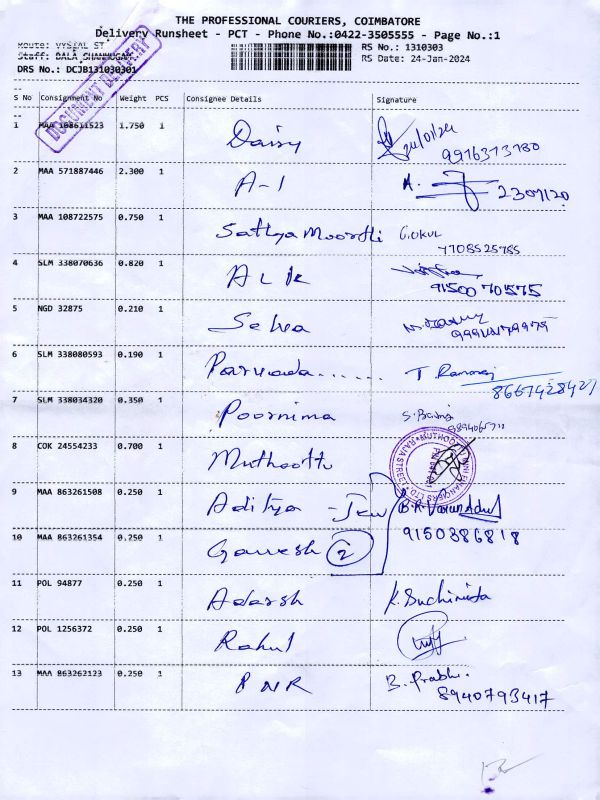 THE PROFESSIONAL COURIERS, COIMBATORE
Delivery Runsheet - PCT - Phone No.:0422-3505555 - Page No.:1
Route: VYSIAL ST
Staff: BALA SHANMUGAM
DRS No.: DCJB131030301
RS No.: 1310303
RS Date: 24-Jan-2024
DOCUMENT DELIVERY
S No Consignment No Weight PCS Consignee Details Signature
1 MAA 108611523 1.750 1 Daisy 24/01/24
9976373780
2 MAA 571887446 2.300 1 A-1 A.
3 MAA 108722575 0.750 1 Sathya Moorthi GOKUL
7708525785
4 SLM 338070636 0.820 1 ALK
9150070575
5 NGD 32875 0.210 1 Selva
6 SLM 338080593 0.190 1 Parvada...... T. Ramraj
8667428427
7 SLM 338034320 0.350 1 Poornima
8 COK 24554233 0.700 1 Muthoottu
MUTHOOTTU MINI FINANCIERS LTD. RAJA STREET
9 MAA 863261508 0.250 1 Aditya - Jew B.R. Varun Adul
10 MAA 863261354 0.250 1 Ganesh 2 9150386818
11 POL 94877 0.250 1 Adarsh K. Suchinita
12 POL 1256372 0.250 1 Rahul
13 MAA 863262123 0.250 1 PNR B. Prabhu
8940793417